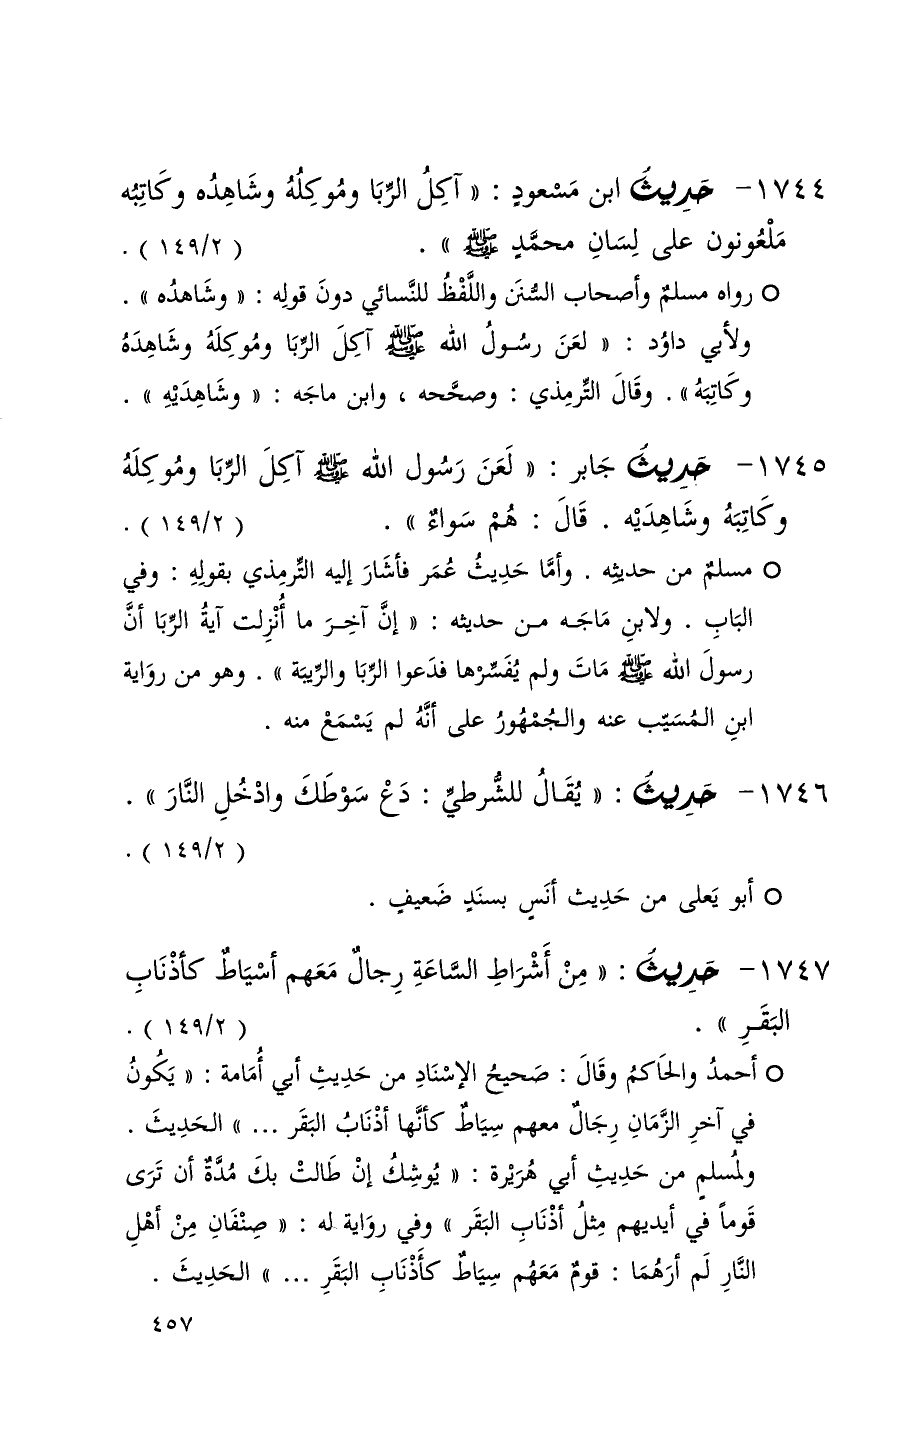 ١٧٤٤- حَدِيثُ ابن مَسْعودٍ : « آكِلُ الرِّبَا ومُوكِلُهُ وشَاهِدُه وكَاتِبُه
مَلْعُونون على لِسَانِ محمَّدٍ ﷺ » . ( ١٤٩/٢ ) .
○ رواه مسلمٌ وأصحاب السُّنَن واللَّفْظُ للنَّسائي دونَ قولِه : « وشَاهدُه » .
ولأبي داوُد : « لعَنَ رسُولُ الله ﷺ آكِلَ الرِّبَا ومُوكِلَهُ وشَاهِدَهُ
وكَاتِبَهُ » . وقَالَ التِّرمِذي : وصحَّحه ، وابن ماجَه : « وشَاهِدَيْهِ » .
١٧٤٥- حَدِيثُ جَابر : « لَعَنَ رَسُول الله ﷺ آكِلَ الرِّبَا ومُوكِلَهُ
وكَاتِبَهُ وشَاهِدَيْه . قَالَ : هُمْ سَواءٌ » . ( ١٤٩/٢ ) .
○ مسلمٌ من حديثِه . وأمَّا حَدِيثُ عُمَر فأشَارَ إليه التِّرمِذي بقولِهِ : وفي
البَابِ . ولابنِ مَاجَـه مـن حديثه : « إنَّ آخِـرَ ما أُنْزِلت آيةُ الرِّبَا أنَّ
رسولَ الله ﷺ مَاتَ ولم يُفَسِّرْها فدَعوا الرِّبَا والرِّيبَة » . وهو من روَاية
ابنِ المُسَيّب عنه والجُمْهُورُ على أنَّهُ لم يَسْمَعْ منه .
١٧٤٦- حَدِيثُ : « يُقَالُ للشُّرطيِّ : دَعْ سَوْطَكَ وادْخُلِ النَّارَ » .
( ١٤٩/٢ ) .
○ أبو يَعلى من حَدِيث أنَسٍ بسنَدٍ ضَعيفٍ .
١٧٤٧- حَدِيثُ : « مِنْ أَشْرَاطِ السَّاعَةِ رِجالٌ مَعَهم أسْيَاطٌ كأذْنَابِ
البَقَـرِ » . ( ١٤٩/٢ ) .
○ أحمدُ والحَاكمُ وقَالَ : صَحيحُ الإسْنَادِ من حَدِيثِ أبي أُمَامة : « يَكُونُ
في آخرِ الزَّمَانِ رِجَالٌ معهم سِيَاطٌ كأنَّها أذْنَابُ البَقَر ... » الحَدِيثَ .
ولمُسلمٍ من حَدِيثِ أبي هُرَيْرة : « يُوشِكُ إنْ طَالتْ بكَ مُدَّةٌ أن تَرَى
قَوماً في أيديهم مِثلُ أذْنَابِ البَقَر » وفي روَاية له : « صِنْفَانِ مِنْ أهْلِ
النَّارِ لَم أرَهُمَا : قومٌ مَعَهُم سِيَاطٌ كَأَذْنَابِ البَقَرِ ... » الحَدِيثَ .
٤٥٧